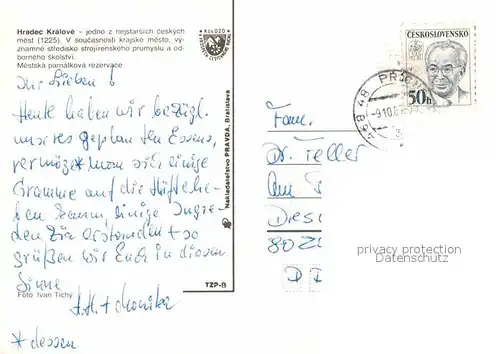 Hradec Králové – jedno z nejstarších českých
měst (1225). V současnosti krajské město, vý-
znamné středisko strojírenského průmyslu a od-
borného školství.
Městská památková rezervace
Ihr Lieben!
Heute haben wir bezügl.
unseres geplanten Essens,
vermöge* man sich einige
Gramme auf die Hüfte
kann, einige Ingre-
erstanden + so
grüßen wir Euch in diesem
Sinne
+ Monika
* dessen
Foto Ivan Tichý
Nakladatelstvo PRAVDA, Bratislava
TZP-8
ČESKOSLOVENSKO
50h
Fam.
Dr. Teller
Am
Dres
80
D D
privacy protection
Datenschutz